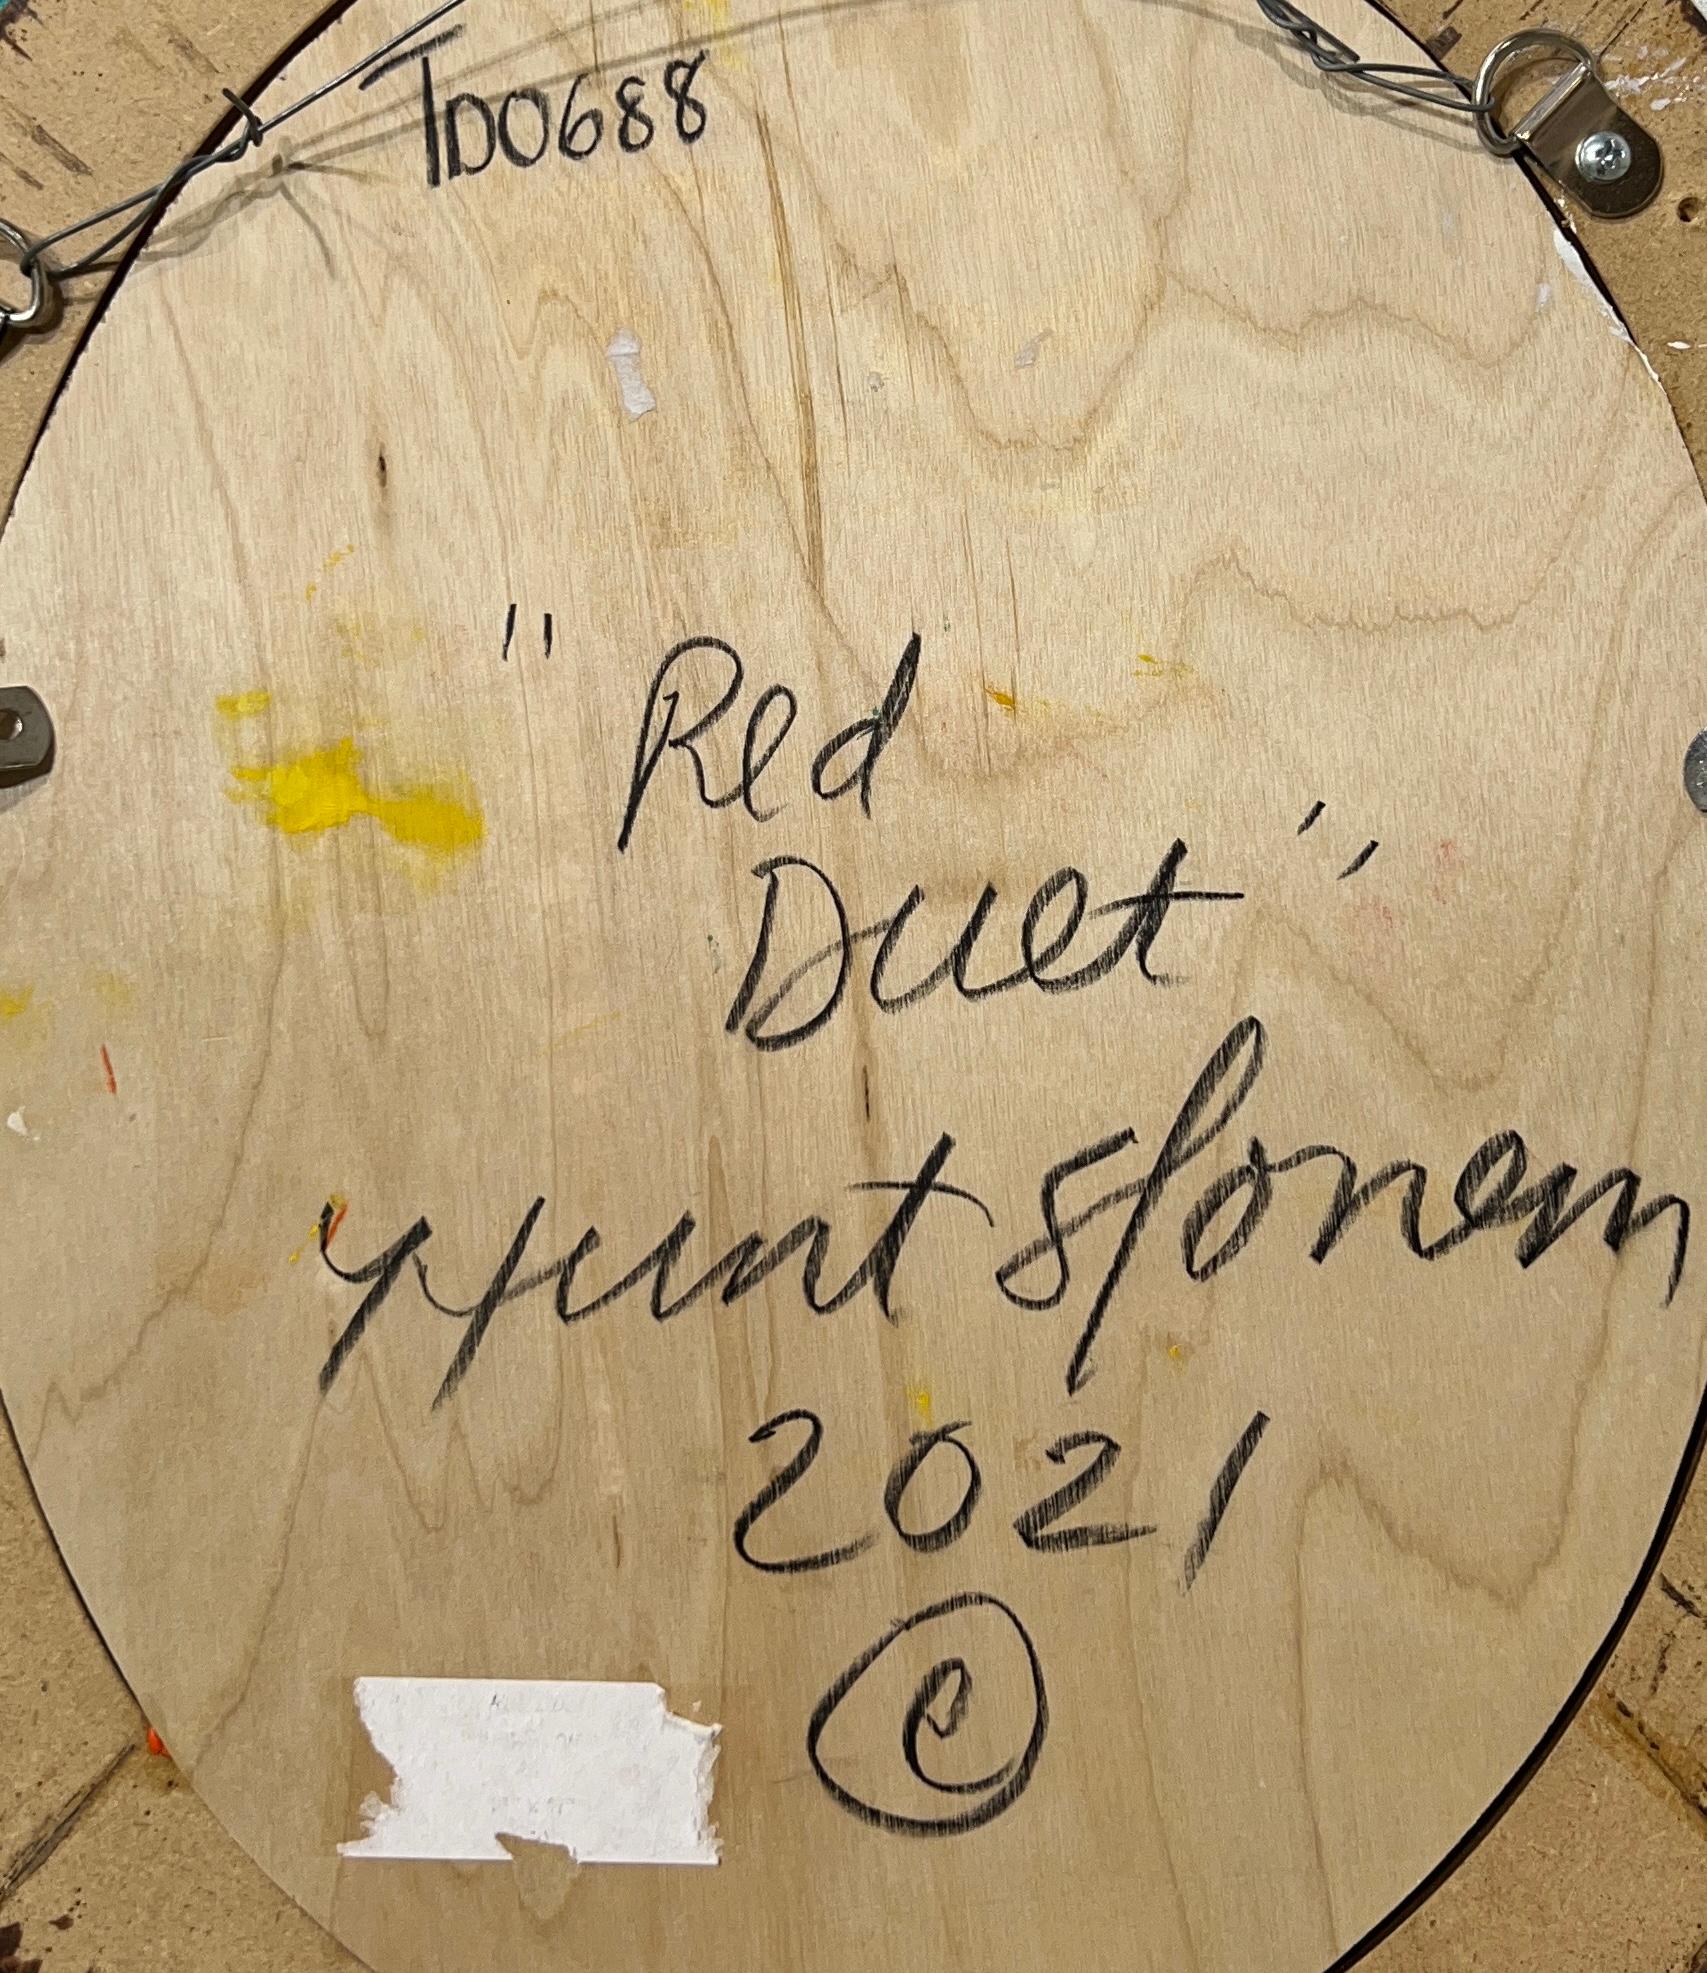 TDO688
"Red
Duet"
Hunt Slonem
2021
©